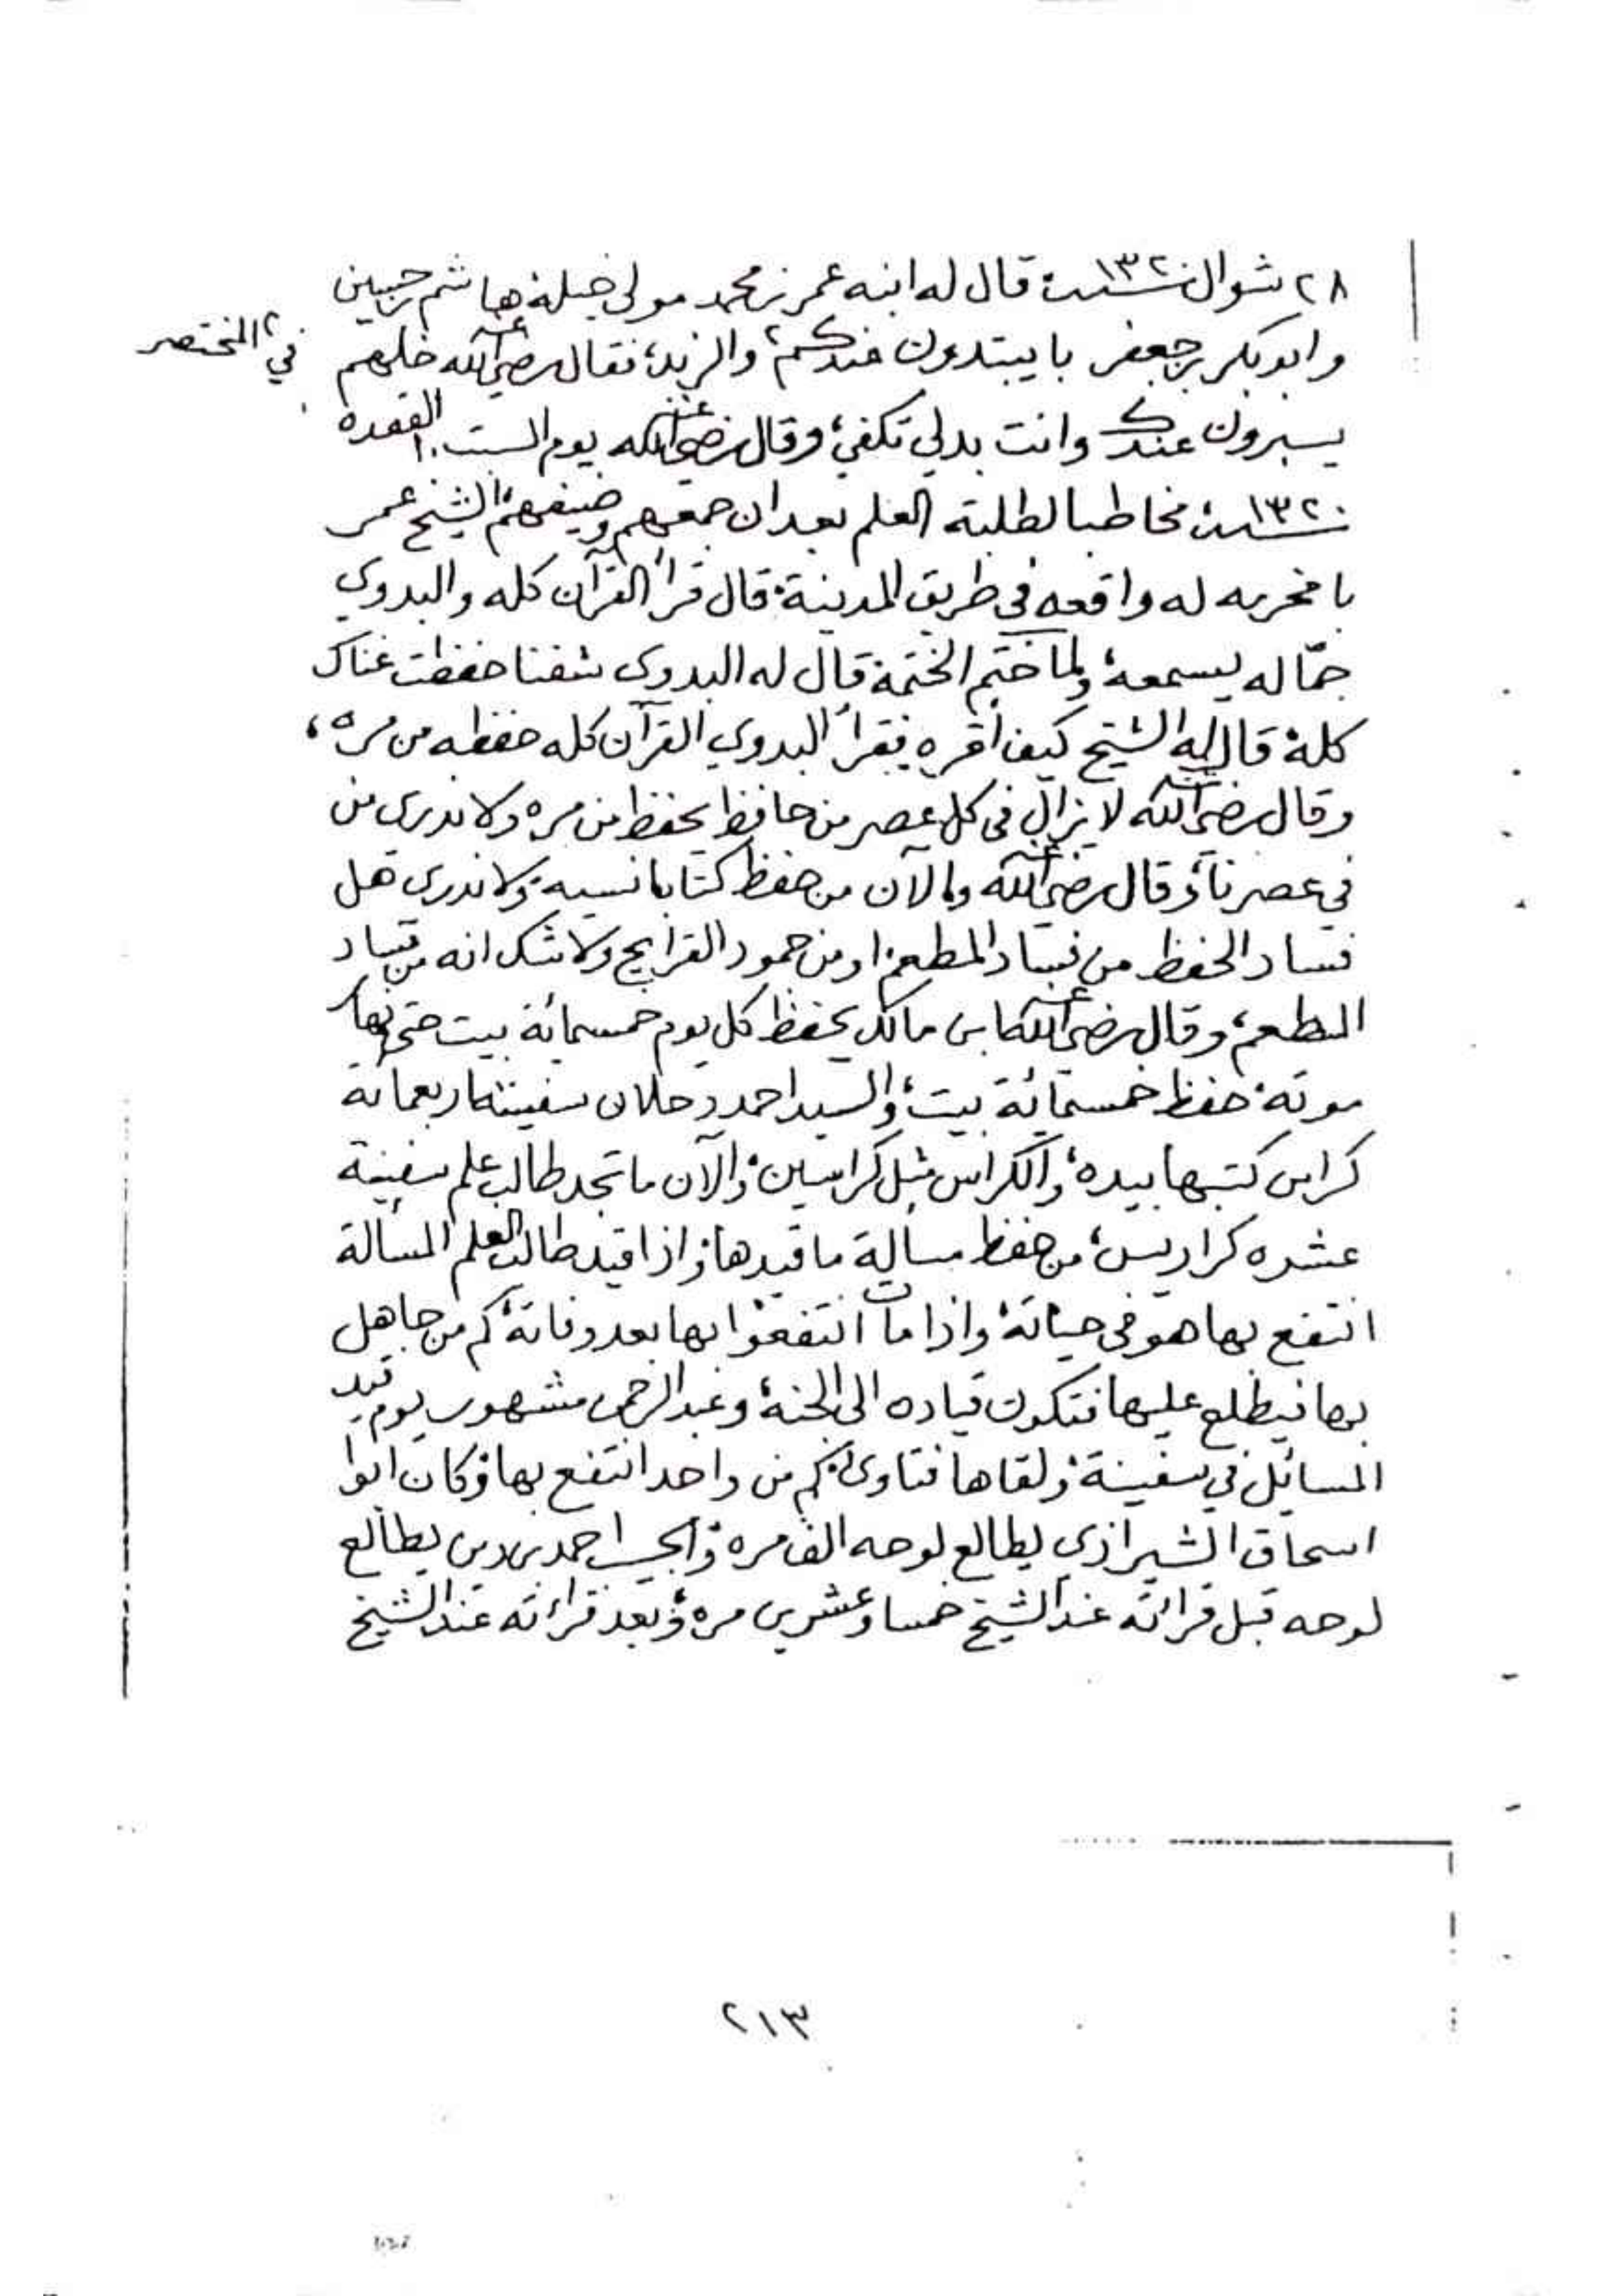 ٢٨ شوال سنة ١٣٢٠ قال له ابنه عمر بن محمد مولى خيلة هاشم حبيين
وابوبكر بن جعفر بايبتدون عندكم، والزبد، فقال رضي الله عنه خلهم
في المختصر
يسبرون عندك وانت بدلي تكفي، وقال رضي الله عنه يوم السبت ١٠ القعدة
سنة ١٣٢٠ مخاطبا لطلبة العلم بعد ان جمعهم وضيفهم، الشيخ عمر
بامخرمه له واقعه في طريق المدينة، قال قرأ القرآن كله والبدوي
جمّاله يسمعه، ولما ختم الختمة قال له البدوي شفنا حفظت غناك
كله، قال له الشيخ كيف أقره فقرأ البدوي القرآن كله حفظه من مره،
وقال رضي الله عنه لا يزال في كل عصر من حافظ يحفظ من مره ولا ندري من
في عصرنا، وقال رضي الله عنه والآن من حفظ كتابا نسيه، ولا ندري هل
فساد الحفظ من فساد المطعم، او من جمود القرايح ولا شك انه من فساد
المطعم، وقال رضي الله عنه ابن مالك يحفظ كل يوم خمسمائة بيت حتى نهار
موته، حفظ خمسمائة بيت، والسيد احمد دحلان سفينته اربعمائة
كراس كتبها بيده، والكراس مثل كراسين، والآن ما تجد طالب علم سفينة
عشره كراريس، من حفظ مسألة ما قيدها، واذا قيد طالب العلم المسألة
انتفع بها هو في حياته، واذا مات انتفعوا بها بعد وفاته، كم من جاهل
بها فيطلع عليها فتكون قياده الى الجنة، وعبدالرحمن مشهور يوم قيد
المسائل في سفينة، ولقاها فتاوى، كم من واحد انتفع بها، وكان ابوا
اسحاق الشيرازي يطالع لوحه الف مره، والحبيب احمد بن زين يطالع
لوحه قبل قرائته عند الشيخ خمسا وعشرين مره، وبعد قرائته عند الشيخ
٢١٣